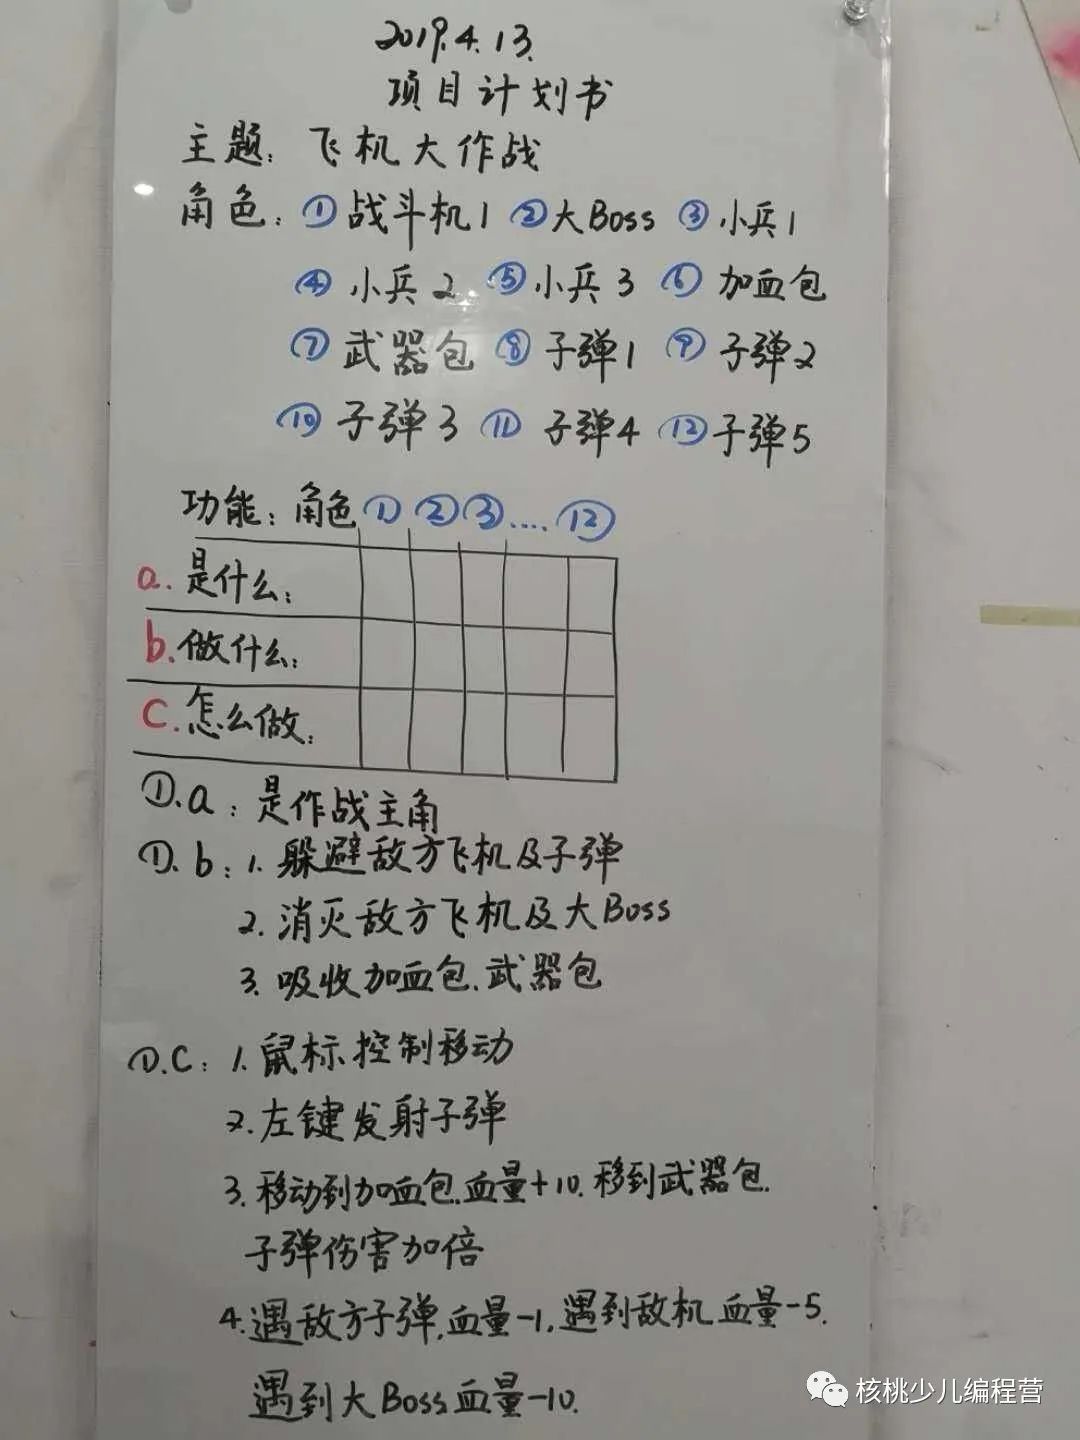 2019.4.13.
项目计划书
主题：飞机大作战
角色：①战斗机1 ②大Boss ③小兵1
④小兵2 ⑤小兵3 ⑥加血包
⑦武器包 ⑧子弹1 ⑨子弹2
⑩子弹3 ⑪子弹4 ⑫子弹5
功能：角色 ① ② ③ .... ⑫
a.是什么：
b.做什么：
c.怎么做：
①.a：是作战主角
①.b：1.躲避敌方飞机及子弹
2.消灭敌方飞机及大Boss
3.吸收加血包.武器包
①.C：1.鼠标控制移动
2.左键发射子弹
3.移动到加血包.血量+10.移到武器包.
子弹伤害加倍
4.遇敌方子弹.血量-1.遇到敌机血量-5.
遇到大Boss血量-10.
核桃少儿编程营